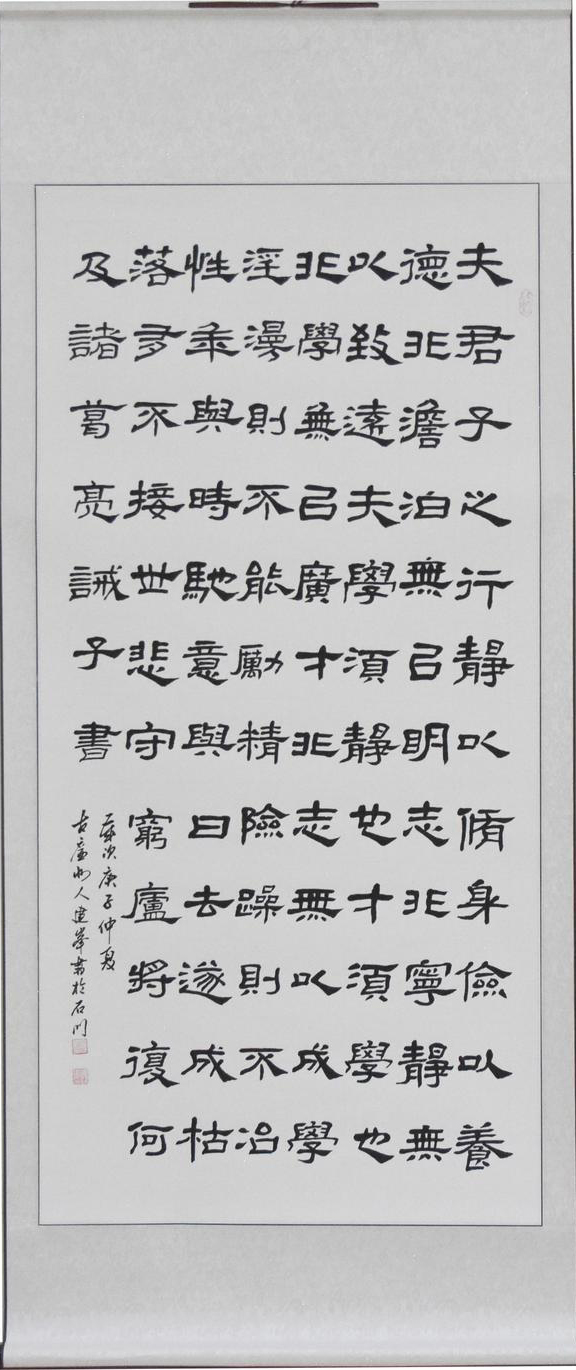 夫君子之行靜以脩身儉以養
德非澹泊無以明志非寧靜無
以致遠夫學須靜也才須學也
非學無以廣才非志無以成學
淫漫則不能勵精險躁則不冶
性年與時馳意與日去遂成枯
落多不接世悲守窮廬將復何
及諸葛亮誡子書
歲次庚子仲夏
古廬州人建峯書於石門